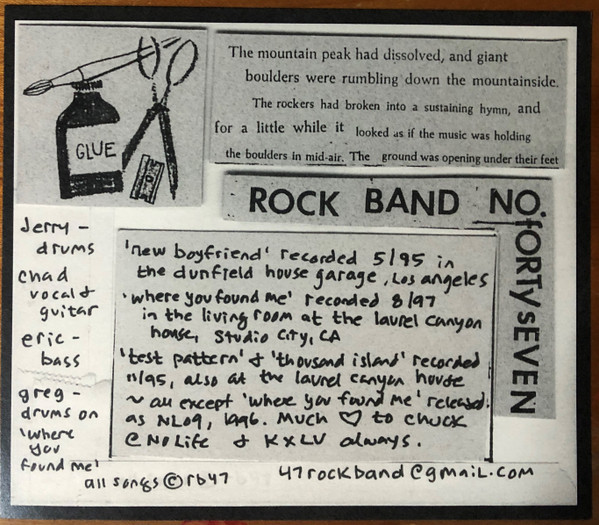 GLUE
The mountain peak had dissolved, and giant
boulders were rumbling down the mountainside.
The rockers had broken into a sustaining hymn, and
for a little while it looked as if the music was holding
the boulders in mid-air. The ground was opening under their feet
ROCK BAND NO.
FORTYSEVEN
Jerry -
drums
chad
vocal +
guitar
eric -
bass
greg -
drums on
'where
you
found me'
'new boyfriend' recorded 5/95 in
the dunfield house garage, Los angeles
'where you found me' recorded 8/97
in the living room at the laurel canyon
house, Studio City, CA
'test pattern' & 'thousand island' recorded
11/95, also at the laurel canyon house
~ all except 'where you found me' released
as NL09, 1996. Much ♡ to chuck
@ No Life & KXLV always.
all songs © rb47
47rockband@gmail.com